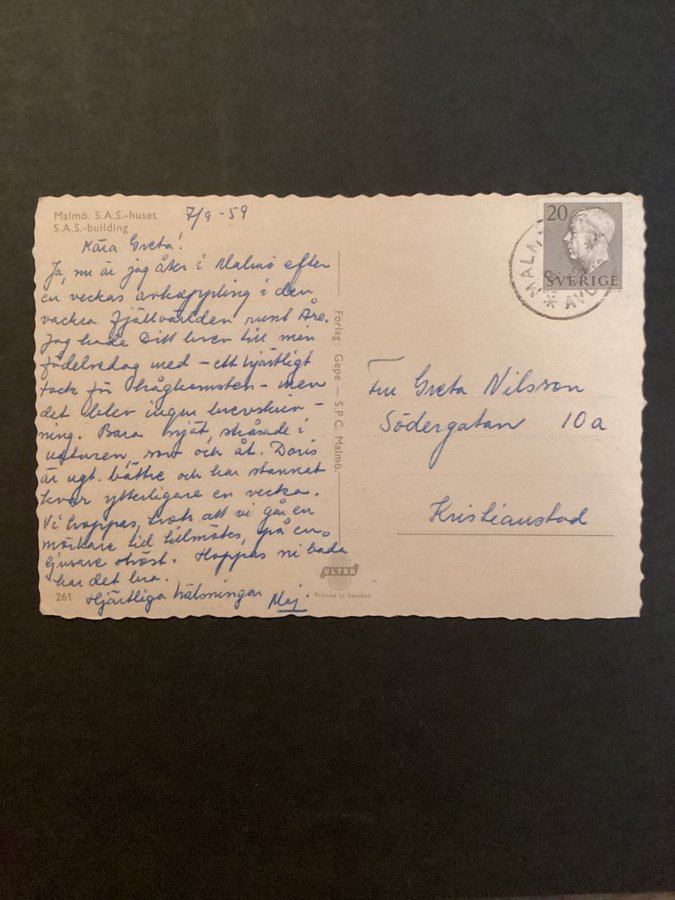 Malmö. S.A.S.-huset
S.A.S.-building
7/9 -59
Kära Greta!
Ja, nu är jag åter i Malmö efter
en veckas avkoppling i den
vackra fjällvärlden runt Åre.
Jag hade Ditt brev till min
födelsedag med – ett hjärtligt
tack för hågkomsten – men
det blev ingen brevskriv-
ning. Bara njöt, strövade i
naturen, sov och åt. Doris
är ngt. bättre och har stannat
kvar ytterligare en vecka.
Vi hoppas, trots att vi gå en
mörkare tid tillmötes, på en
ljusare höst. Hoppas ni båda
har det bra.
Hjärtliga hälsningar Maj.
261
Förlag: Gepe – S.P.C. Malmö.
ULTRA
Printed in Sweden
20
SVERIGE
MALM
AVG
Fru Greta Nilsson
Södergatan 10a
Kristianstad